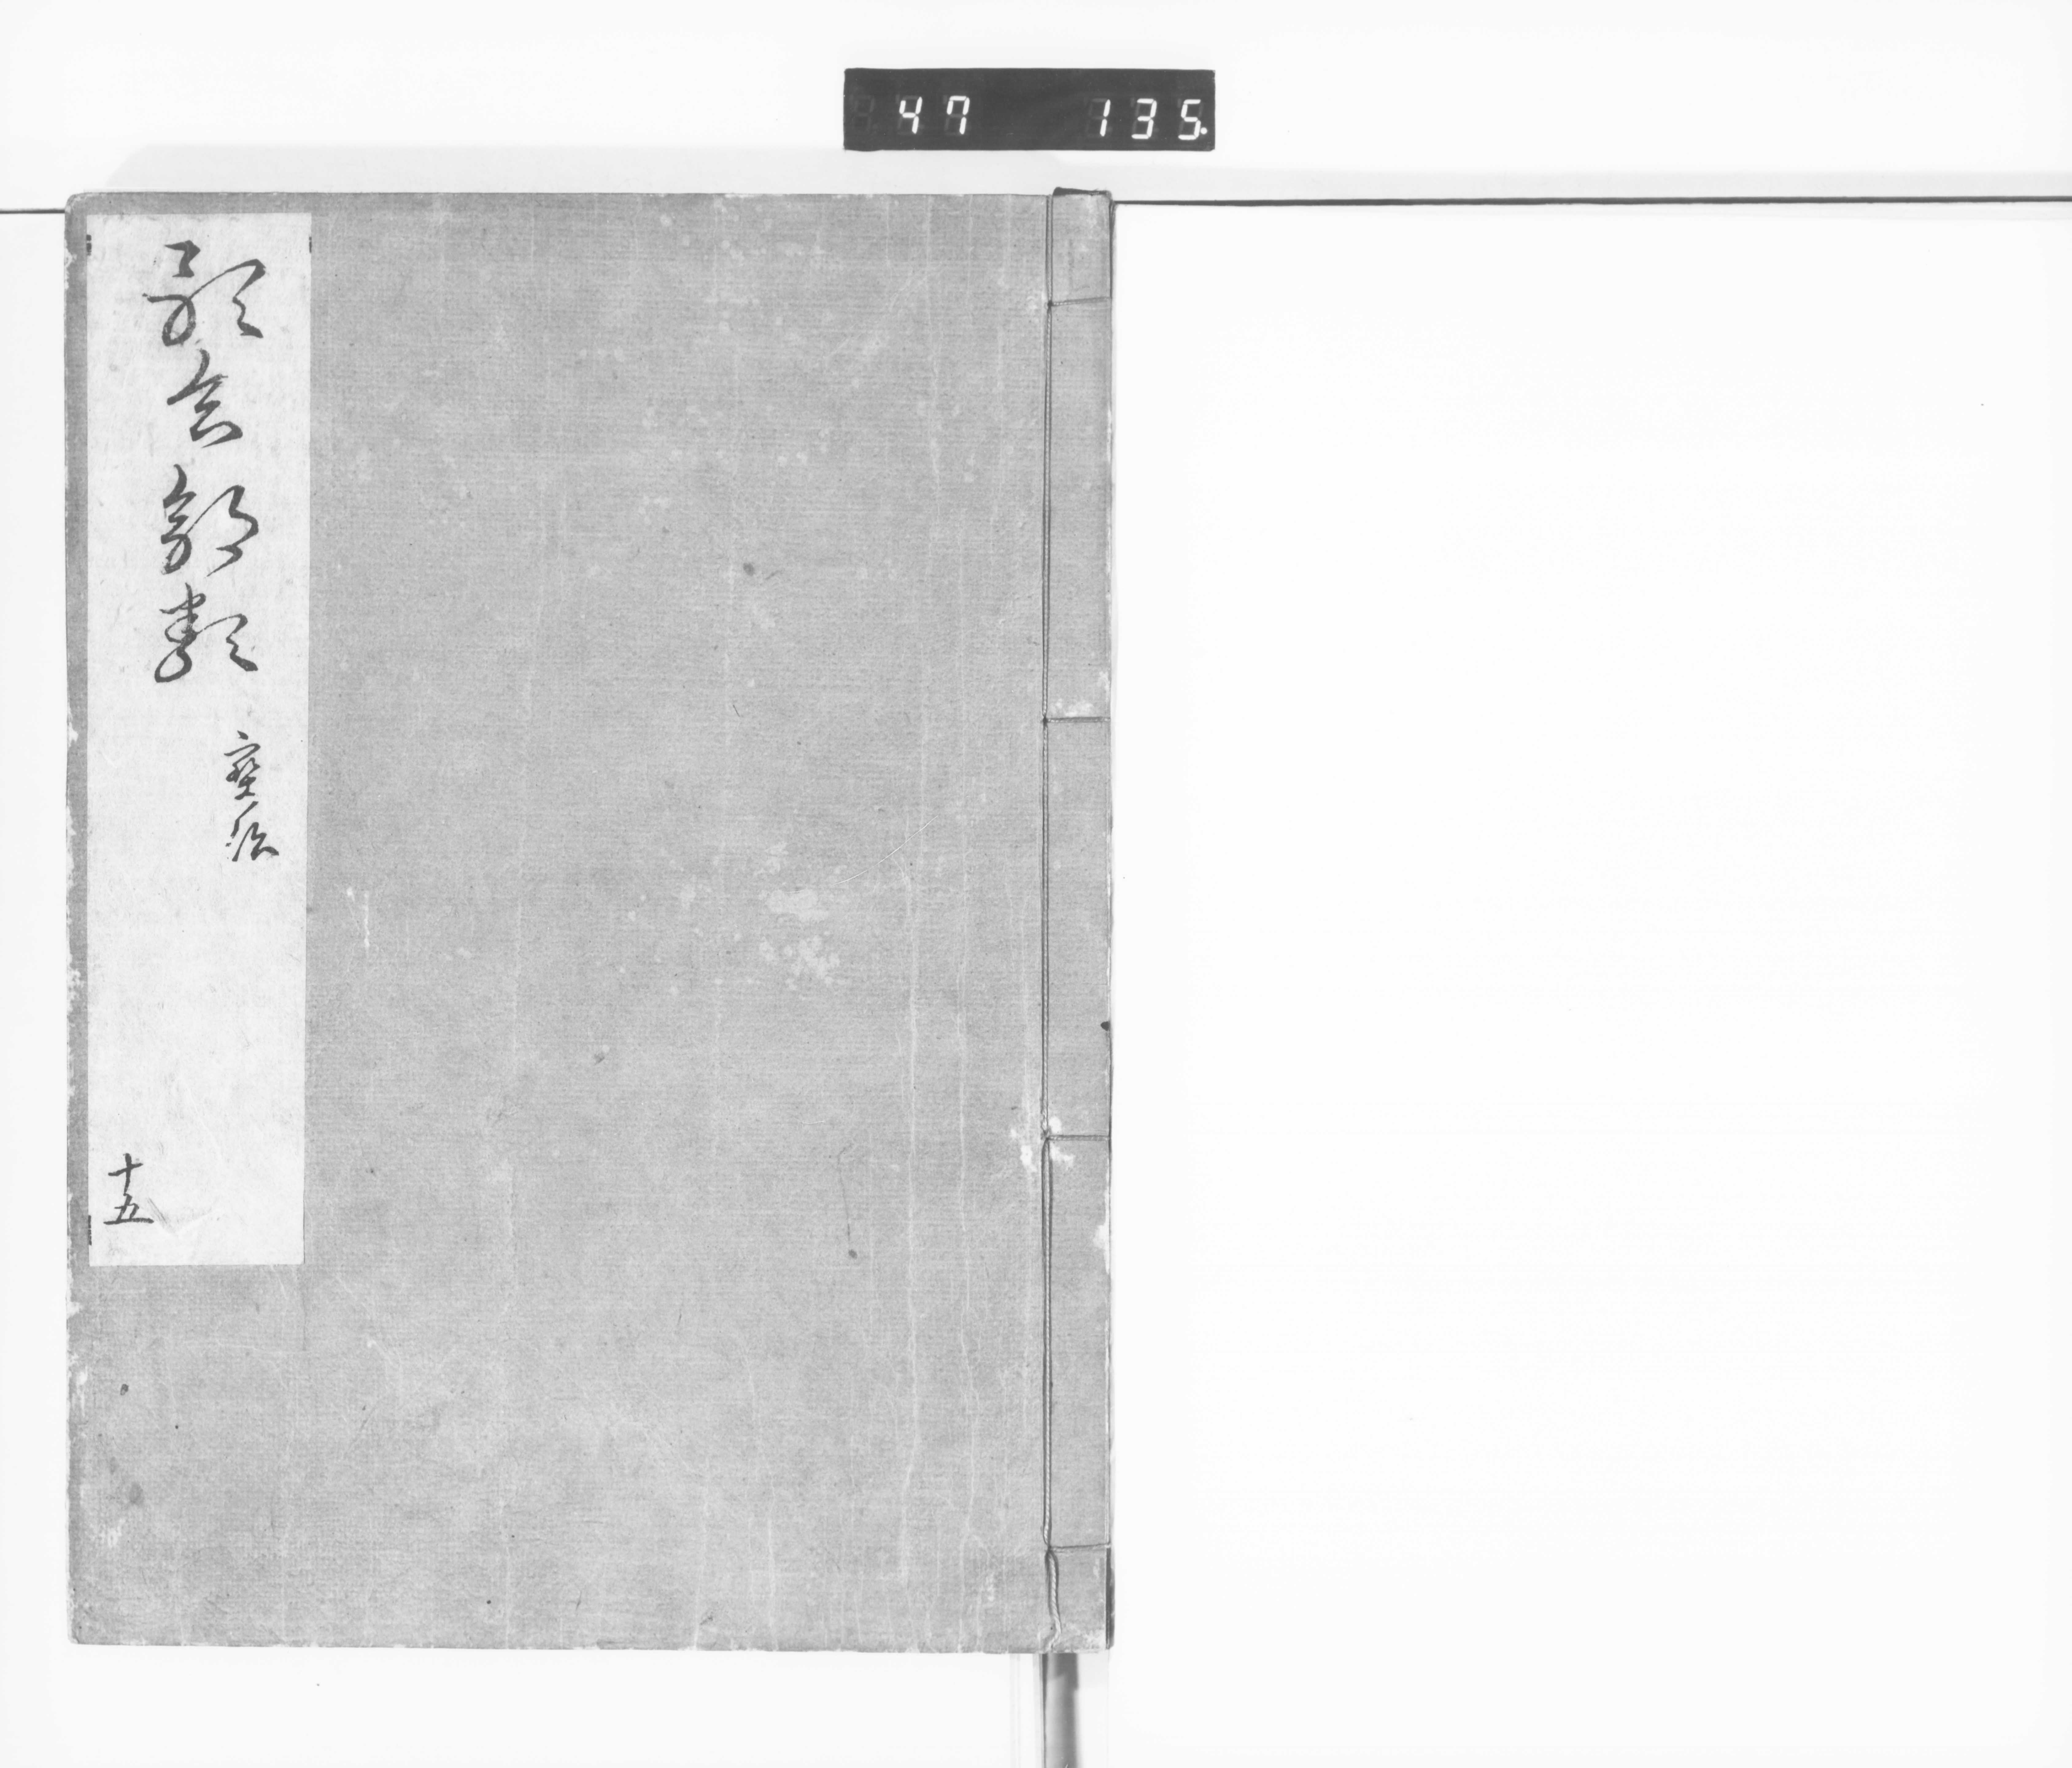 47 135.
歌合部類
十五